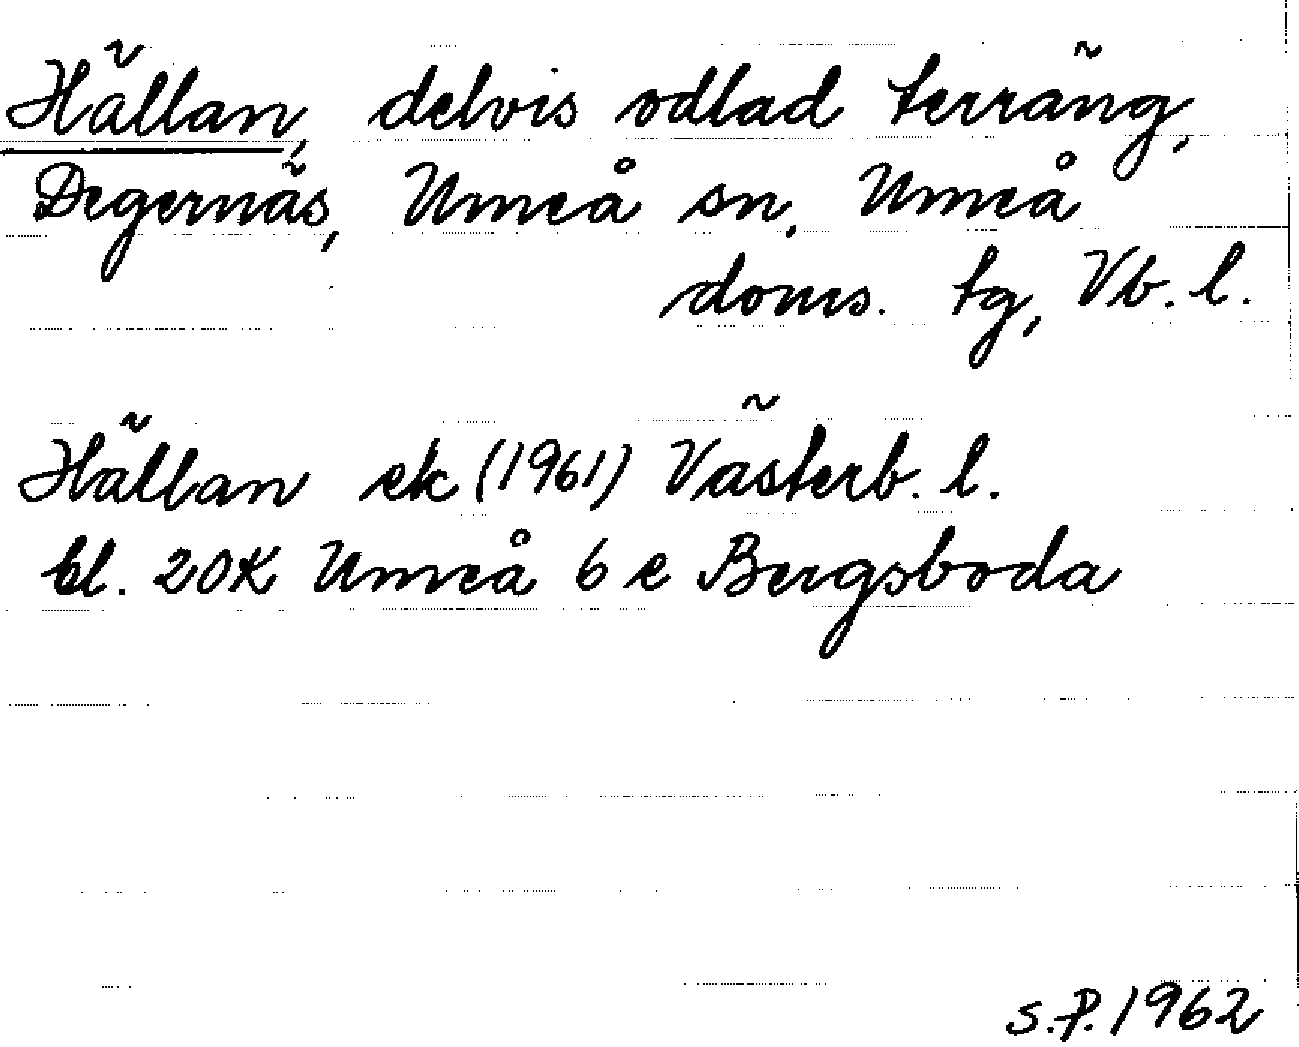 Hällan, delvis odlad terräng,
Degernäs, Umeå sn, Umeå
doms. tg, Vb. l.
Hällan ek (1961) Västerb. l.
bl. 20K Umeå 6 e Bergsboda
S.P. 1962